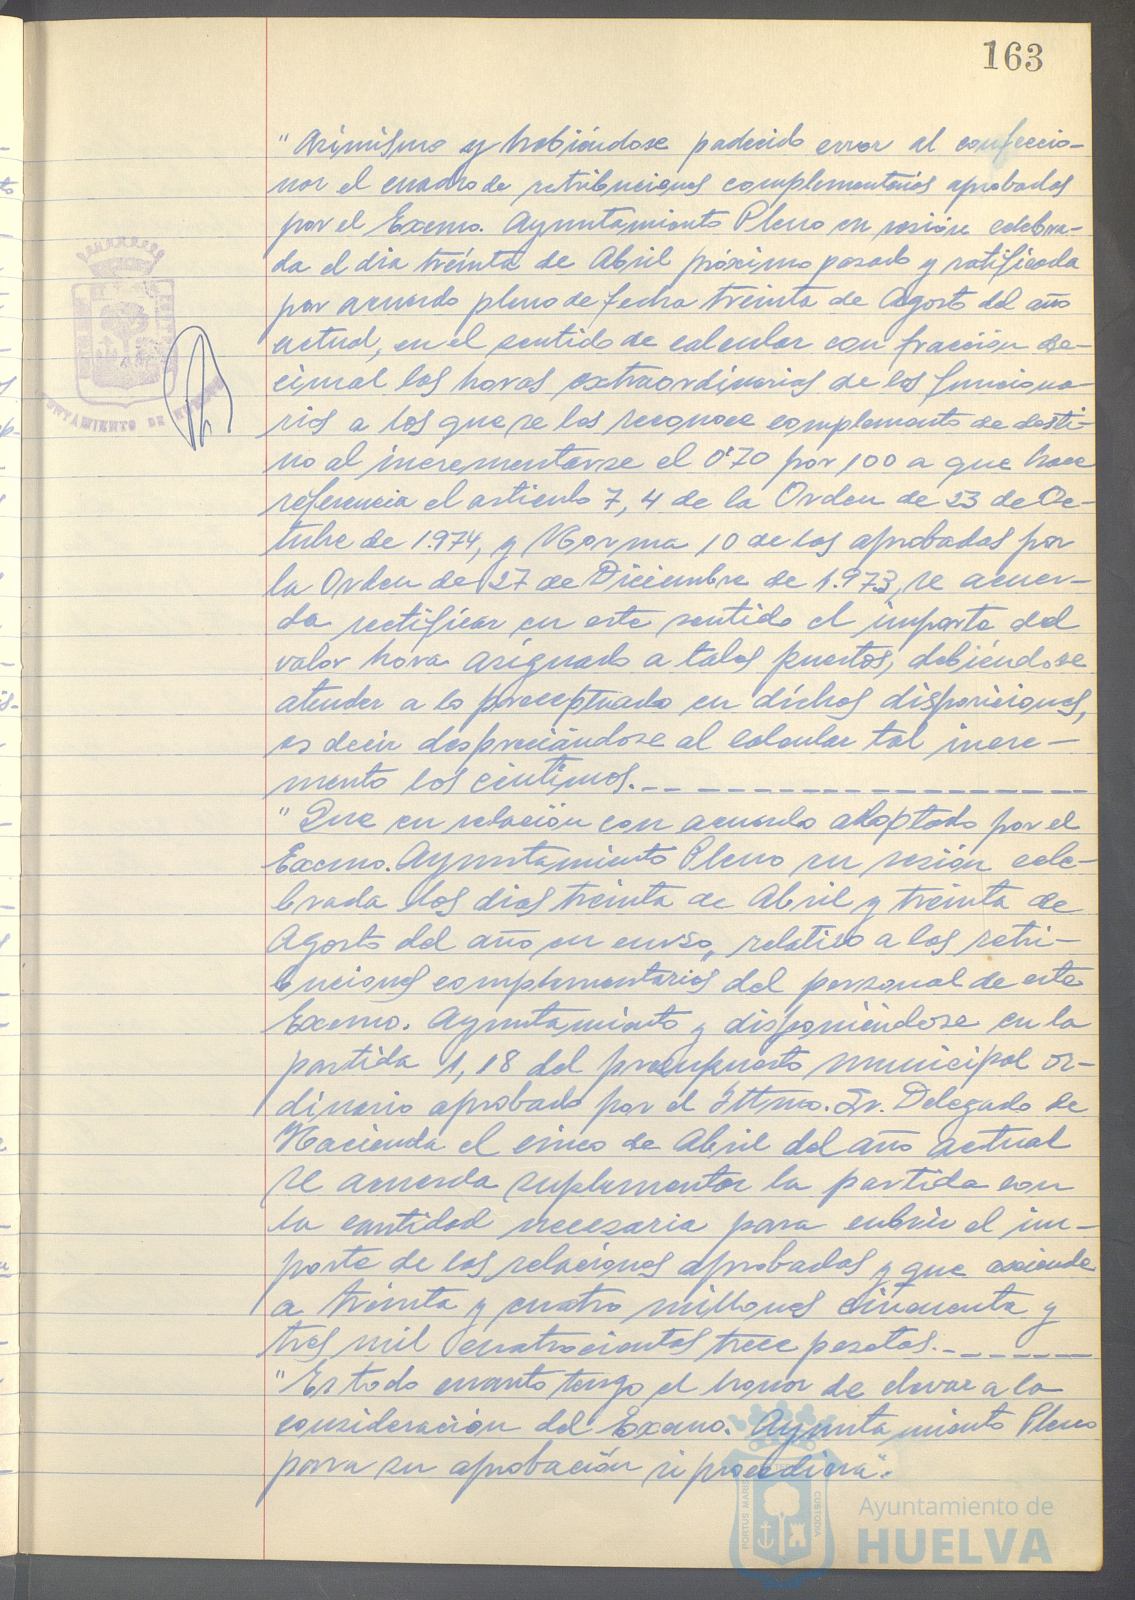 163
"Asimismo y habiéndose padecido error al confeccio-
nar el cuadro de retribuciones complementarias aprobadas
por el Excmo. Ayuntamiento Pleno en sesión celebra-
da el dia treinta de Abril próximo pasado y ratificada
por acuerdo pleno de fecha treinta de Agosto del año
actual, en el sentido de calcular con fracción de-
cimal las horas extraordinarias de los funciona-
rios a los que se les reconoce complemento de desti-
no al incrementarse el 0'70 por 100 a que hace
referencia el articulo 7, 4 de la Orden de 23 de Oc-
tubre de 1.974, y Norma 10 de las aprobadas por
la Orden de 27 de Diciembre de 1.973, se acuer-
da rectificar en este sentido el importe del
valor hora asignado a tales puestos, debiéndose
atender a lo preceptuado en dichas disposiciones,
es decir despreciándose al calcular tal incre-
mento los céntimos.
"Que en relación con acuerdo adoptado por el
Excmo. Ayuntamiento Pleno en sesión cele-
brada los dias treinta de Abril y treinta de
Agosto del año en curso, relativo a las retri-
buciones complementarias del personal de este
Excmo. Ayuntamiento y disponiéndose en la
partida 1,18 del presupuesto municipal or-
dinario aprobado por el Iltmo. Sr. Delegado de
Hacienda el cinco de Abril del año actual
se acuerda suplementar la partida con
la cantidad necesaria para cubrir el im-
porte de las relaciones aprobadas y que asciende
a treinta y cuatro millones cincuenta y
tres mil cuatrocientas trece pesetas.
"Es todo cuanto tengo el honor de elevar a la
consideración del Excmo. Ayuntamiento Pleno
para su aprobación si procediera".
AYUNTAMIENTO DE HUELVA
PORTUS MARIS
CUSTODIA
Ayuntamiento de
HUELVA